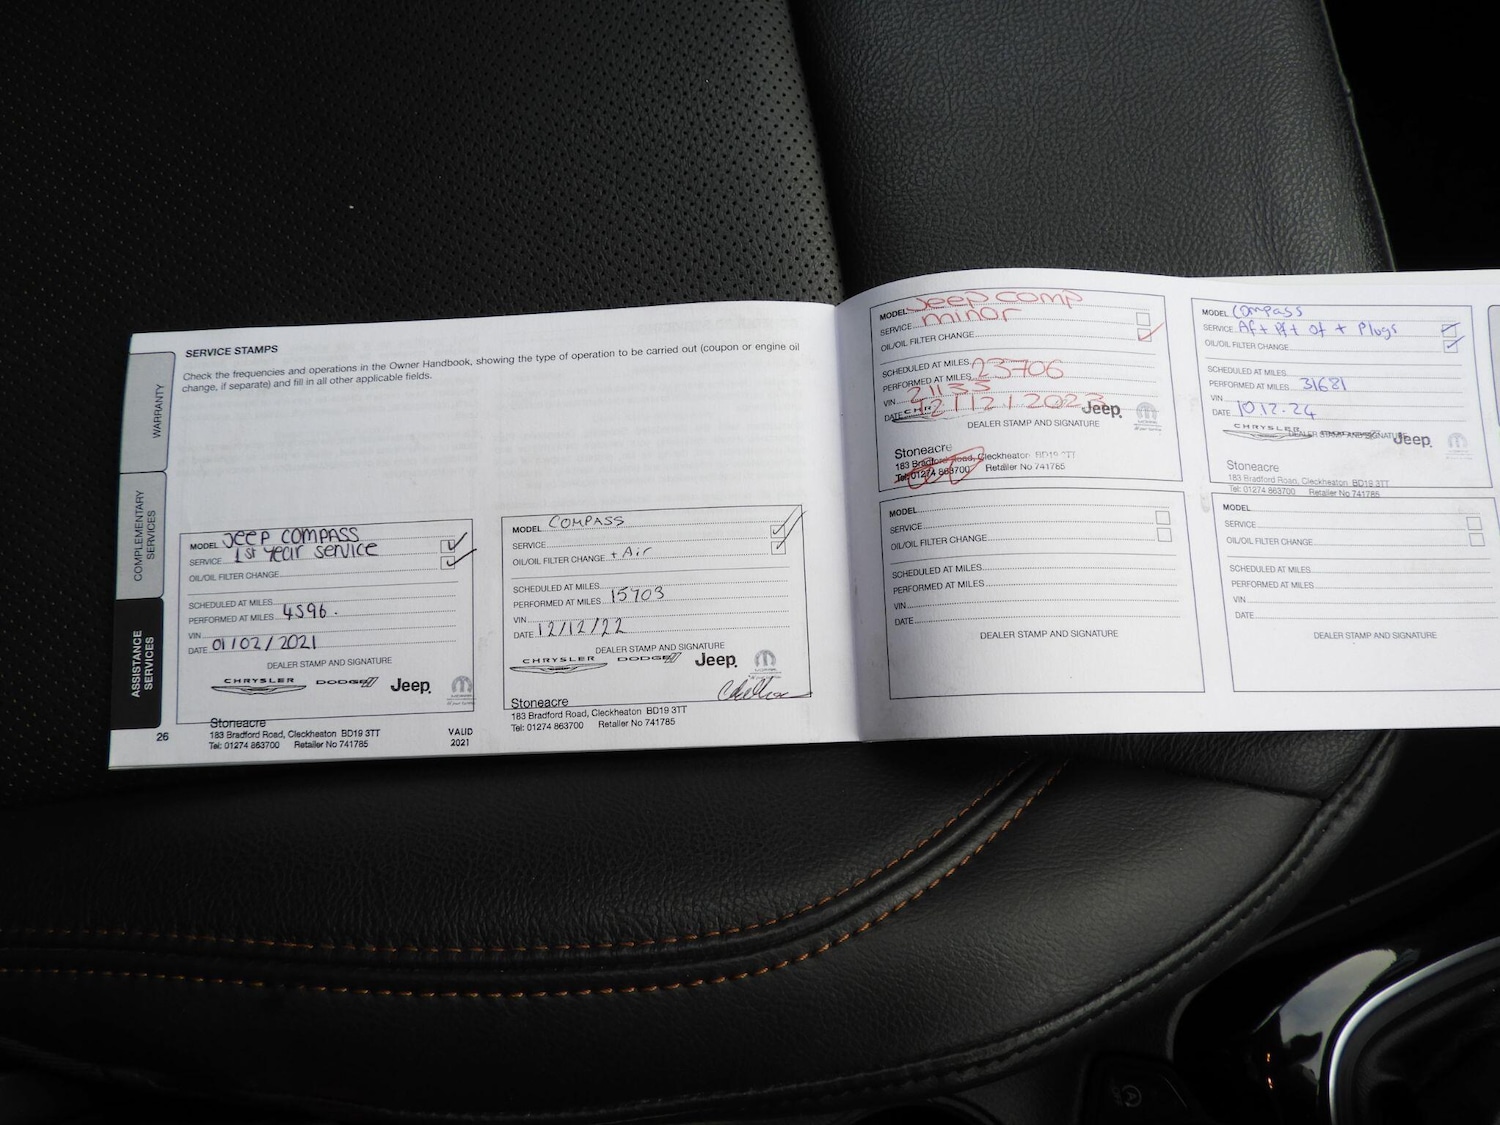 SERVICE STAMPS
Check the frequencies and operations in the Owner Handbook, showing the type of operation to be carried out (coupon or engine oil
change, if separate) and fill in all other applicable fields.
WARRANTY
COMPLEMENTARY
SERVICES
ASSISTANCE
SERVICES
MODEL Jeep COMPASS
SERVICE 1st year service
OIL/OIL FILTER CHANGE
SCHEDULED AT MILES
PERFORMED AT MILES 4596.
VIN
DATE 01/02/2021
DEALER STAMP AND SIGNATURE
CHRYSLER DODGE Jeep
Stoneacre
183 Bradford Road, Cleckheaton BD19 3TT
Tel: 01274 863700 Retailer No 741785
26
VALID
2021
MODEL COMPASS
SERVICE
OIL/OIL FILTER CHANGE + Air
SCHEDULED AT MILES
PERFORMED AT MILES 15703
VIN
DATE 12/12/22
DEALER STAMP AND SIGNATURE
CHRYSLER DODGE Jeep
Stoneacre
183 Bradford Road, Cleckheaton BD19 3TT
Tel: 01274 863700 Retailer No 741785
MODEL Jeep comp
SERVICE minor
OIL/OIL FILTER CHANGE
SCHEDULED AT MILES
PERFORMED AT MILES 23706
VIN 21133
DATE 12/12/2023
Jeep
DEALER STAMP AND SIGNATURE
Stoneacre
183 Bradford Road, Cleckheaton BD19 3TT
Tel: 01274 863700 Retailer No 741785
MODEL Compass
SERVICE Af + Pf + Of + Plugs
OIL/OIL FILTER CHANGE
SCHEDULED AT MILES
PERFORMED AT MILES 31681
VIN
DATE 10.12.24
CHRYSLER DEALER STAMP AND SIGNATURE Jeep
Stoneacre
183 Bradford Road, Cleckheaton BD19 3TT
Tel: 01274 863700 Retailer No 741785
MODEL
SERVICE
OIL/OIL FILTER CHANGE
SCHEDULED AT MILES
PERFORMED AT MILES
VIN
DATE
DEALER STAMP AND SIGNATURE
MODEL
SERVICE
OIL/OIL FILTER CHANGE
SCHEDULED AT MILES
PERFORMED AT MILES
VIN
DATE
DEALER STAMP AND SIGNATURE